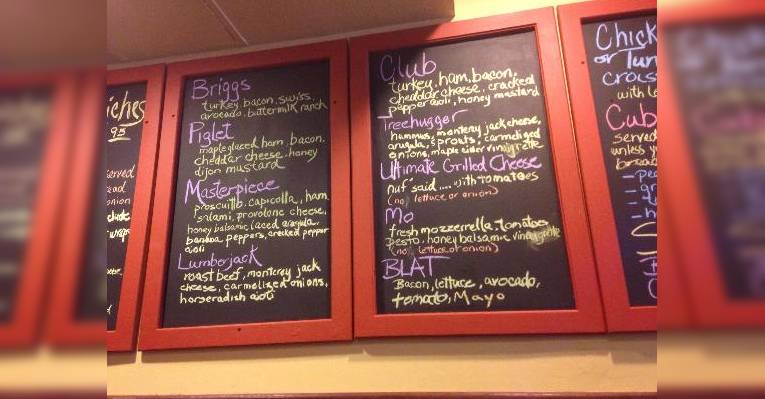 iches
9.95
Briggs
turkey, bacon, swiss,
avocado, buttermilk ranch
Piglet
maple glazed ham, bacon,
cheddar cheese, honey
dijon mustard
Masterpiece
prosciutto, capicolla, ham
salami, provolone cheese,
honey balsamic laced arugula,
banana peppers, cracked pepper
aioli
Lumberjack
roast beef, monterey jack
cheese, carmelized onions,
horseradish aioli
Club
turkey, ham, bacon,
cheddar cheese, cracked
pepper aioli, honey mustard
Treehugger
hummus, monterey jack cheese,
arugula, sprouts, carmelized
onions, maple cider vinaigrette
Ultimate Grilled Cheese
nuf' said.... with tomatoes
(no lettuce or onion)
Mo
fresh mozzerrella, tomatoes,
pesto, honey balsamic vinaigrette
(no lettuce or onion)
BLAT
Bacon, lettuce, avocado,
tomato, Mayo
Chick
or Tun
crois
with le
Cub
served
unless y
bread